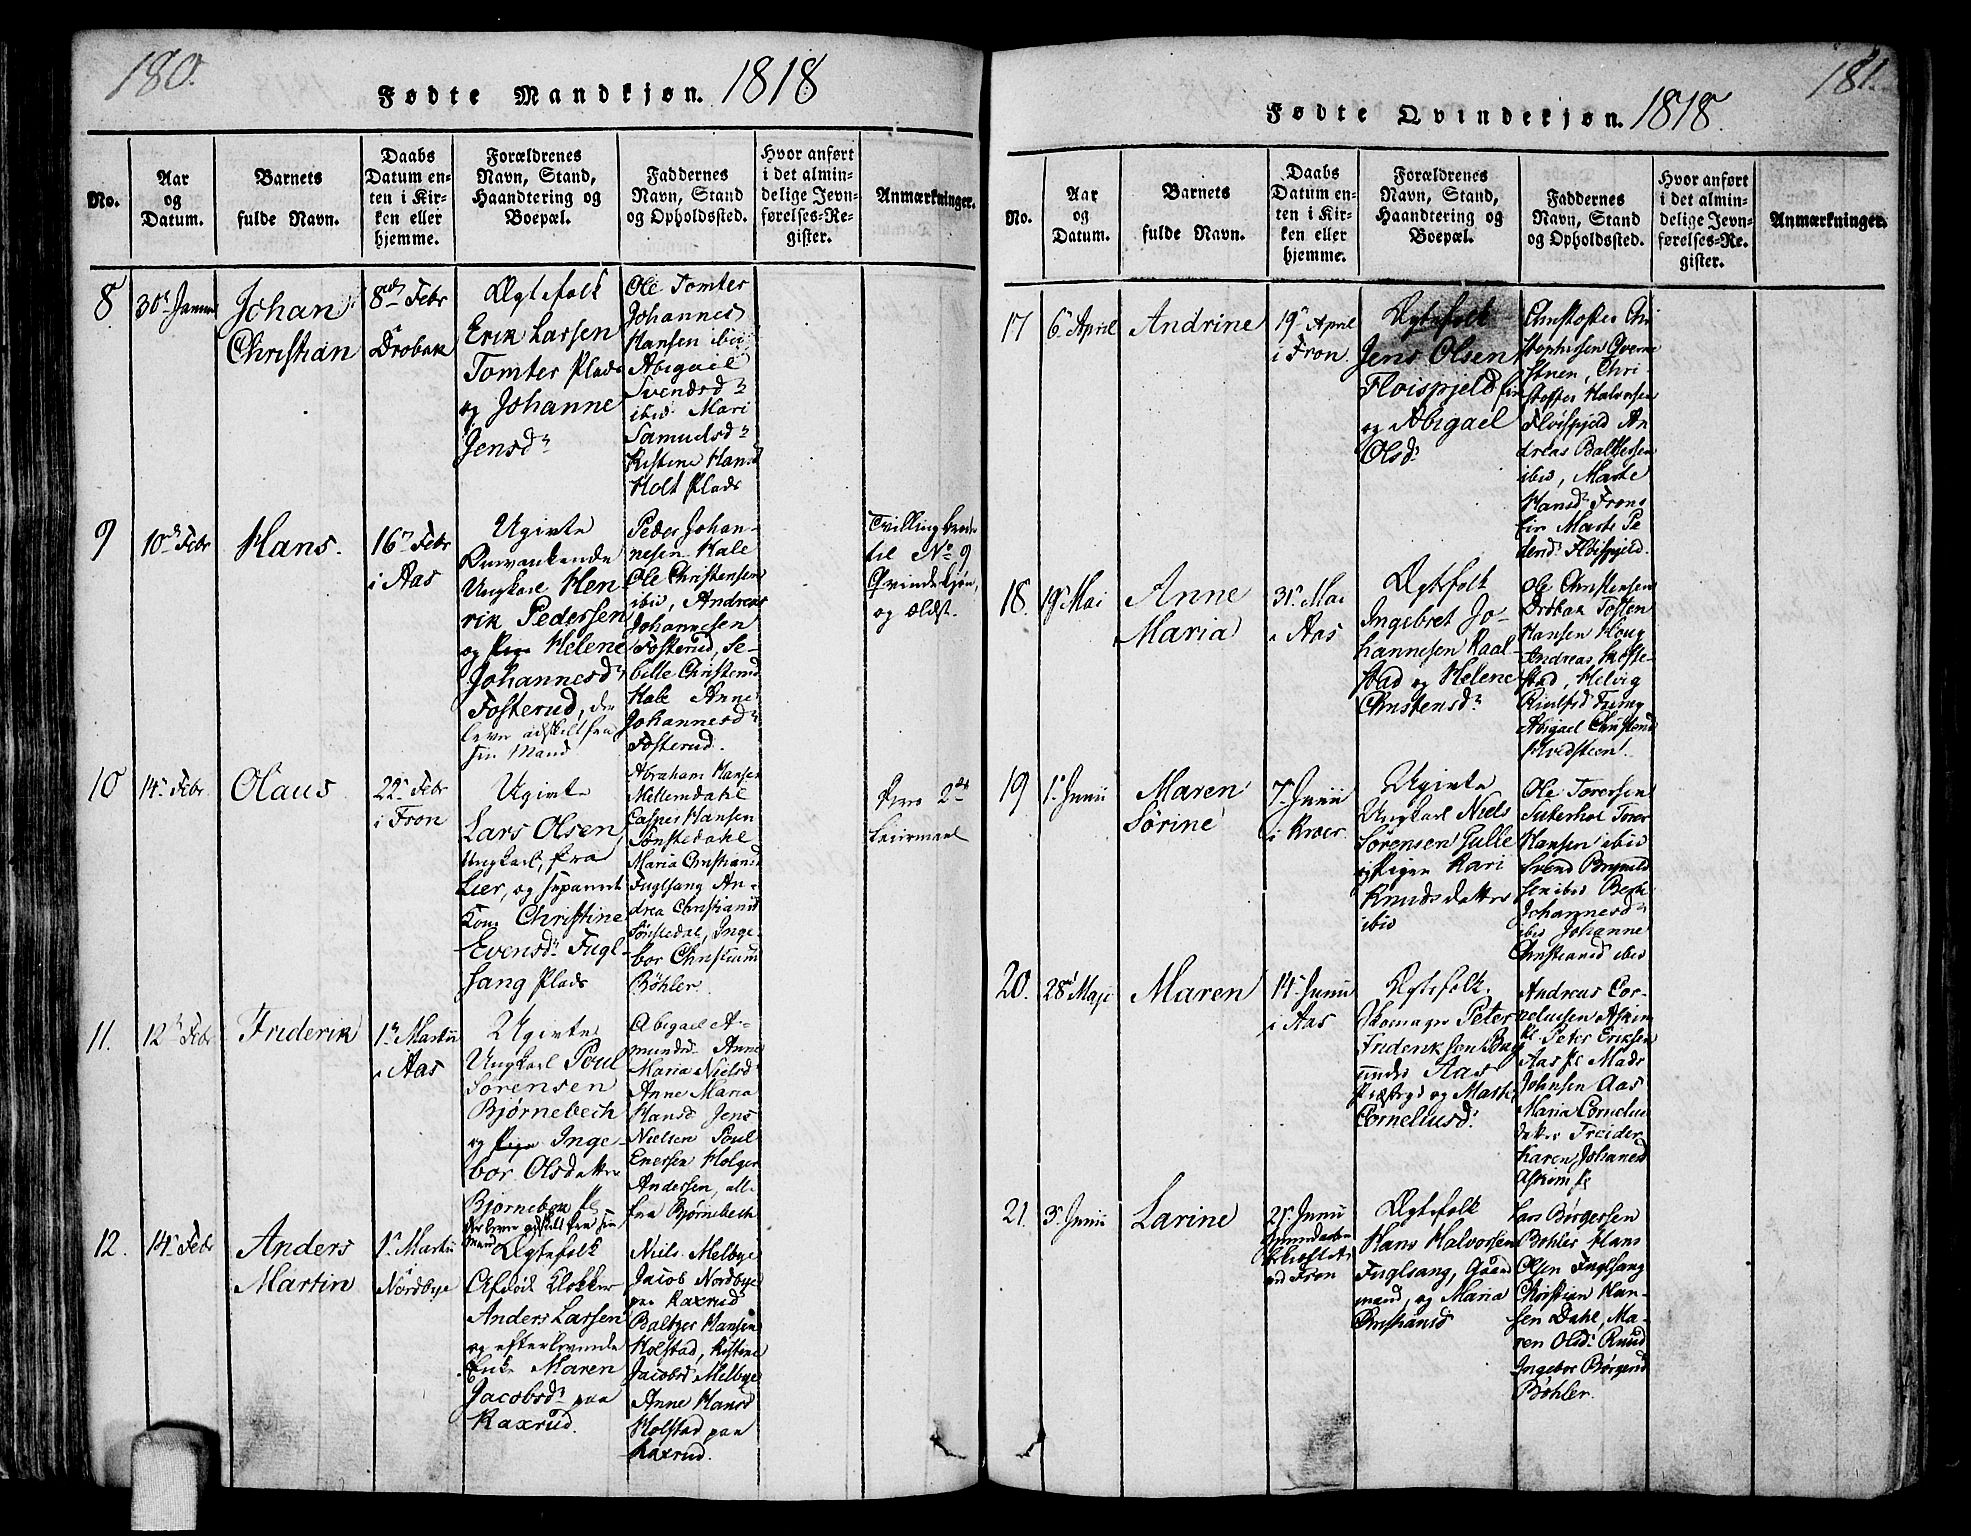 180.
Fødte Mandkjøn. 1818
No.
Aar
og
Datum.
Barnets
fulde Navn.
Daabs
Datum en-
ten i Kir-
ken eller
hjemme.
Forældrenes
Navn, Stand,
Haandtering og
Boepæl.
Faddernes
Navn, Stand
og Opholdssted.
Hvor anført
i det almin-
delige Jevn-
førelses-Re-
gister.
Anmærkninger.
8
30t Janua
Johan
Christian
8de Febr
Drøbak
Ægtefolk
Erik Larsen
Tomter Plads
og Johanne
Jensdr
Ole Tomter
Johannes
Hansen ibid
Abigael
Svendsdr
ibid Mari
Samuelsdr
Kistine Hansd
Holt Plads
9
10de Febr
Hans.
16de Febr
i Aas
Ugivte
Omvankende
Ungkarl Hen
rik Pedersen
og Pige Helene
Johannesdr
Fosterud, der
lever adskilt fra
sin Mand
Peder Johan-
nesen Hale
Ole Christensen
ibid, Andreas
Johannesen
Fosterud, Se-
bille Christensd
Hale Anne
Johannesdr
Fosterud.
Tvilling
til No 9
Qvindekjøn,
og ældst.
10
14de Febr
Olaus
22de Febr
i Fron
Ugivte
Lars Olsen,
Ungkarl, fra
Lier, og separert
Kone Christine
Evensdr Fugl-
sang Plads
Abraham Hansen
Mellemdahle
Casper Hansen
Sønstedahl
Maria Christiansd
Fuglsang An-
drea Christiansd
Sønstedal, Inge-
bor Christiansd
Bøhler.
2det
Leiermaal
11.
12te Febr
Friderik
1te Martii
i Aas
Ugivte
Ungkarl Poul
Sørensen
Bjørnebech
og Pige Inge-
bor Olsdatter
Bjørnebech Pl
der lever adskilt fra sin
mand
Abigael A-
mundsd. Anne
Maria Nielsd
Anne Maria
Hansd Jens
Nielsen Poul
Enersen Holger
Andersen, alle
fra Bjørnebech
12.
14de Febr
Anders
Martin
1te Martii
i
Nordbye
Ægtefolk
Afdød Klokker
Anders Larsen
og efterlevende
Enke Maren
Jacobsdr paa
Raxrud.
Niels Melbye
Jacob Nordbye
paa Raxrud
Baltzer Hansen
Holstad, Kistine
Jacobsd Melbye
Anne Hansd
Holstad paa
Raxrud.
181.
Fødte Qvindekjøn. 1818.
No.
Aar
og
Datum.
Barnets
fulde Navn.
Daabs
Datum en-
ten i Kir-
ken eller
hjemme.
Forældrenes
Navn, Stand,
Haandtering og
Boepæl.
Faddernes
Navn, Stand
og Opholdssted.
Hvor anført
i det almin-
delige Jevn-
førelses-Re-
gister.
Anmærkninger.
17
6te April
Andrine
19de April
i Fron
Ægtefolk
Jens Olsen
Fløispjeld
og Abigael
Olsdr
Christoffer Chri
stophersen Qverne
stuen, Chri
stoffer Halvorsen
Fløispjeld An
dreas Baltzersen
ibid, Marte
Hansdr Frons
eie Marte Pe
dersd. Fløispjeld.
18.
19de Mai
Anne
Maria
31te Mai
i Aas
Ægtefolk
Ingebret Jo-
hannesen Kaal-
stad og Helene
Christensdr
Ole Christensen
Drøbak Tosten
Hansen Houg
Andreas Skoffe-
stad, Helvig
Abigael Christensd
Hvidsteen.
19
1te Junii
Maren
Sørine
7de Junii
i Kroer
Ugivte
Ungkarl Niels
Sørensen Gulle
og Pigen Kari
Knudsdatter
ibid
Ole Torersen
Suterhol Torer
Hansen ibid
Svend Brynild
sen ibid Berte
Johannesdr
ibid Johanne
Christiansd ibid
20.
28de Maji
Maren
14de Junii
i Aas
Ægtefolk.
Skomager Peter
Frideriksen
under Aas
Præstegd og Marte
Corneliusdr
Andreas Cor-
neliusen Askim
Pl Peter Eriksen
Aas Pl Mads
Johnsen Aas
Maria Cornelius
datter Treider
Karen Johansd
Askim Pl
21.
3de Junii
Larine
21de Junii
Hjemmedaaben
bekræftet
ved Fron
Ægtefolk
Hans Halvorsen
Fuglsang, Gaard
mand, og Maria
Christiansd
Lars Børgersen
Bøhler Hans
Olsen Fuglsang
Christian Han-
sen Dahl, Ma-
ren Olsdr Ruud
Ingebor Børgersd
Bøhler.